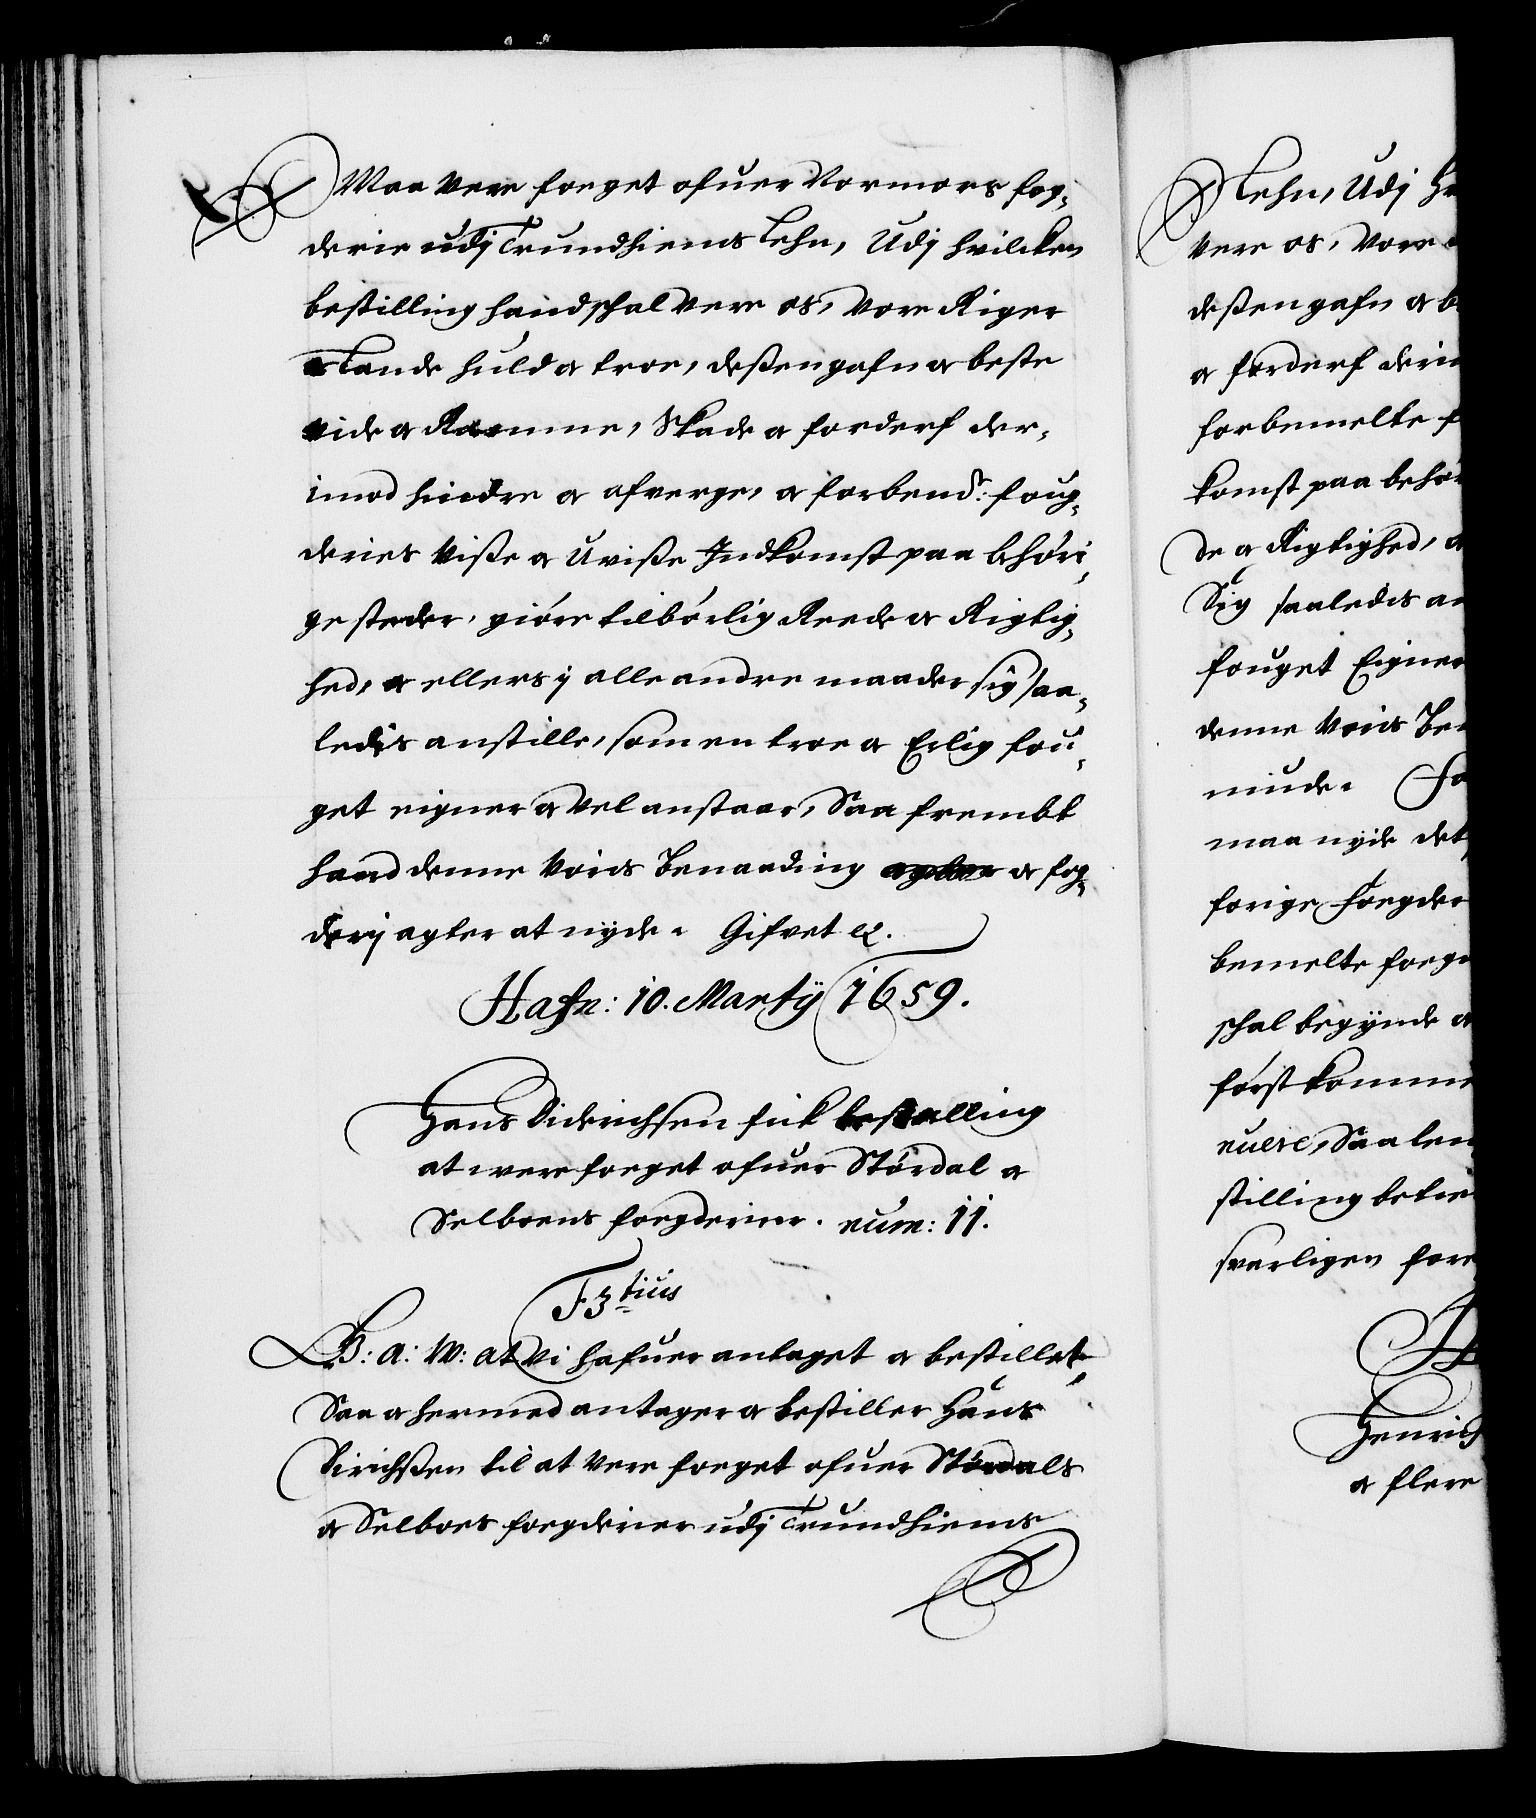 Maa vere foeget ofuer Normors fog-
derie udj Trundhiems Lehn, Udj hvilcken
bestilling hand schal vere os, Vore Riger
oc Lande huld oc troe, deßen gafn oc beste
vide oc Ramme, Skade oc forderf der-
imod hindre oc afverge, oc forbend: foug-
deries Viße oc Uviße Indkomst paa behóri-
ge steder, gióre tilbórlig Reede oc Rigtig-
hed, oc ellers j alle andre maader sig saa-
ledis anstille, som en troe oc Erlig fou-
get eigner oc vel anstaar, Saa frembt
hand denne Voris Benaading oc fog-
derij agter at nyde. Gifvet etc.
Hafn: 10. Martij 1659.
Hans Didrichsen fick bestalling
at were foeget ofuer Stórdal oc
Selboens foegderier. num: 11.
F3tius
B: A: W: at vi hafuer antaget oc bestillet,
Saa oc hermed antager oc bestiller Hans
Dirichßen til at vere foeget ofuer Stórdals
oc Selboes foegderier udj Trundhiems
Lehn, Udj
vere os, Vore
deßen gafn oc b
oc forderf deri
forbemelte f
komst paa behór
de oc Rigtighed, oc
Sig saaledis an
fouget Eigner
denne Voris Be
niude. 
maa nyde det
forige foegder
bemelte foeg
schal begynde oc
fórstkomme
uere, Saa len
stilling betie
svarligen fore
Henrich
oc flere